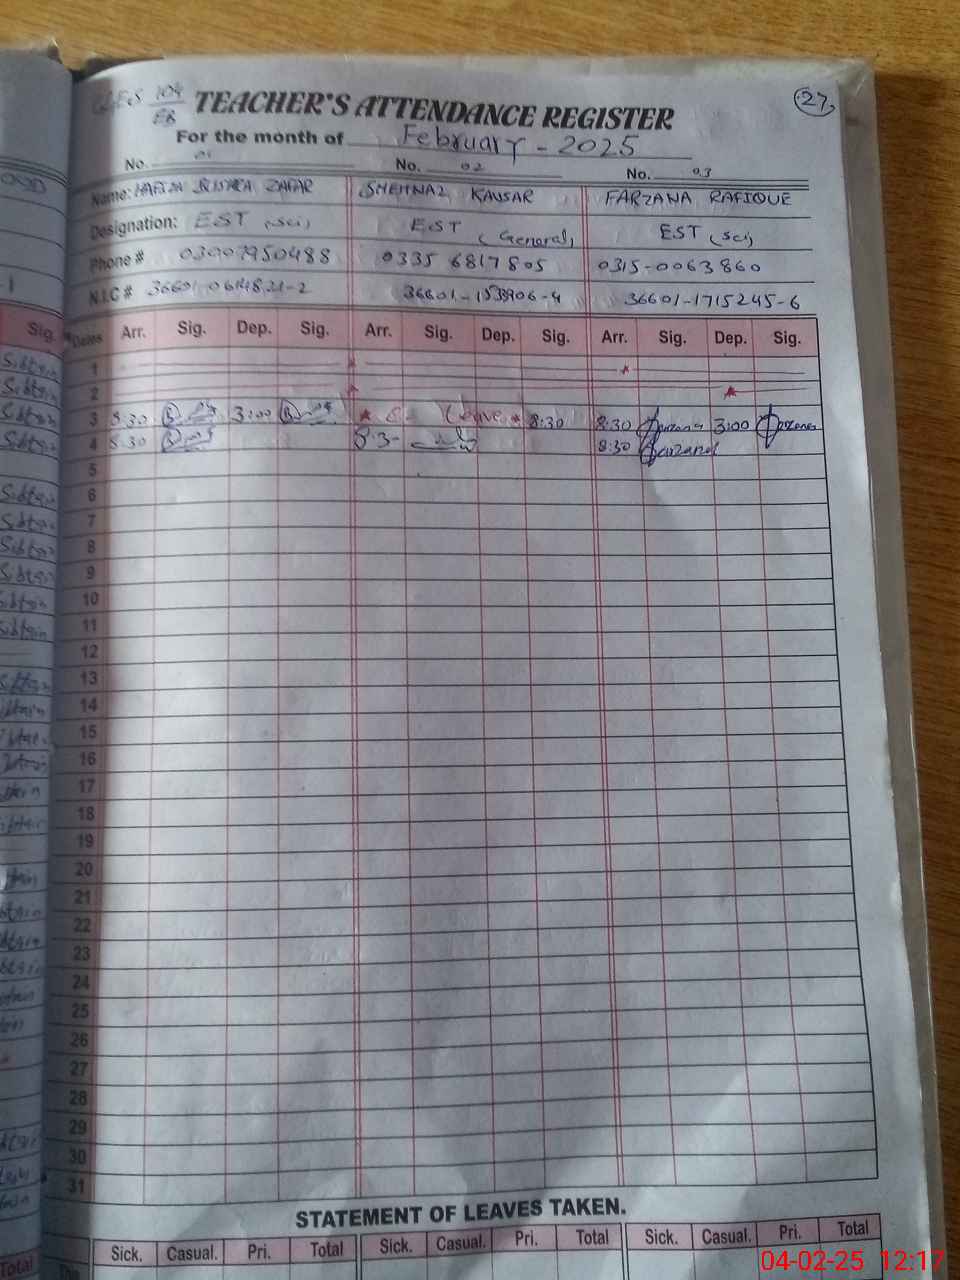 104
EB
TEACHER'S ATTENDANCE REGISTER
27
For the month of February - 2025
No. 01 No. 02 No. 03
Name: ZAFAR SHEHNAZ KAUSAR FARZANA RAFIQUE
Designation: EST (Sci) EST (General) EST (Sci)
Phone # 03007950488 0335 6817805 0315-0063860
N.I.C # 36601-1715245-6
Dates Arr. Sig. Dep. Sig. Arr. Sig. Dep. Sig. Arr. Sig. Dep. Sig.
1
2
3 8:30 3:00 Leave 8:30 8:30 Farzana 3:00 Farzana
4 8:30 8:3- 8:30 Farzana
5
6
7
8
9
10
11
12
13
14
15
16
17
18
19
20
21
22
23
24
25
26
27
28
29
30
31
STATEMENT OF LEAVES TAKEN.
Sick. Casual. Pri. Total Sick. Casual. Pri. Total Sick. Casual. Pri. Total
Sig.
Sibtain
Sibtain
Sibtain
Sibtain
Sibtain
Sibtain
Sibtain
Sibtain
Sibtain
Sibtain
Total
04-02-25 12:17